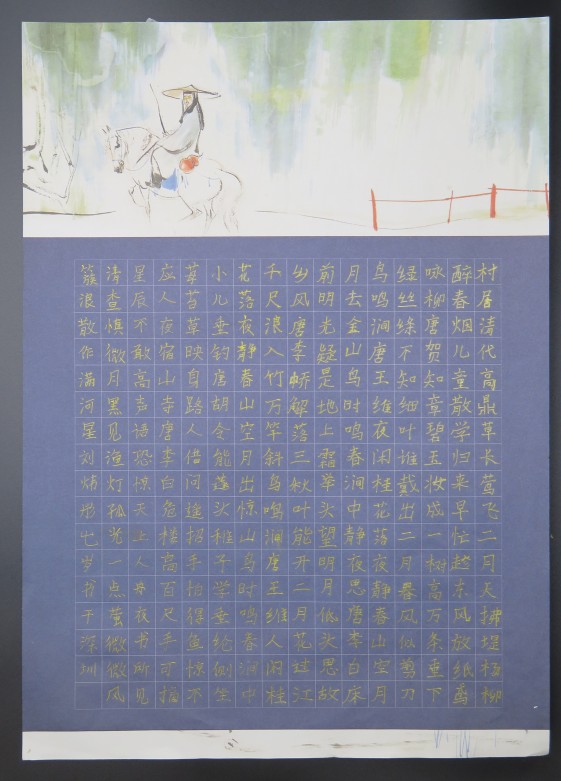 村居清代高鼎草长莺飞二月天拂堤杨柳
醉春烟儿童散学归来早忙趁东风放纸鸢
咏柳唐贺知章碧玉妆成一树高万条垂下
绿丝绦不知细叶谁裁出二月春风似剪刀
鸟鸣涧唐王维夜闲桂花落夜静春山空月
月去金山鸟时鸣春涧中静夜思唐李白床
前明光疑是地上霜举头望明月低头思故
乡风唐李峤解落三秋叶能开二月花过江
千尺浪入竹万竿斜鸟鸣涧唐王维人闲桂
花落夜静春山空月出惊山鸟时鸣春涧中
小儿垂钓唐胡令能蓬头稚子学垂纶侧坐
莓苔草映身路人借问遥招手怕得鱼惊不
应人夜宿山寺唐李白危楼高百尺手可摘
星辰不敢高声语恐惊天上人舟夜书所见
清查慎微月黑见渔灯孤光一点萤微微风
簇浪散作满河星刘炳彤七岁书于深圳